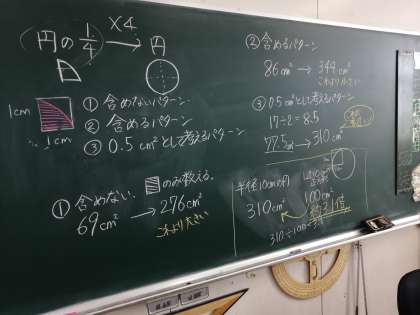 円の1/4 ×4 → 円
1cm
1cm
① 含めないパターン
② 含めるパターン
③ 0.5cm²として考えるパターン
① 含めない のみ数える。
69cm² → 276cm²
これより大きい
② 含めるパターン
86cm² → 344cm²
これより小さい
③ 0.5cm²として考えるパターン
17÷2=8.5
77.5cm² → 310cm²
半径10cmの円
310cm²
100cm²
約3.1倍
310÷100=3.1